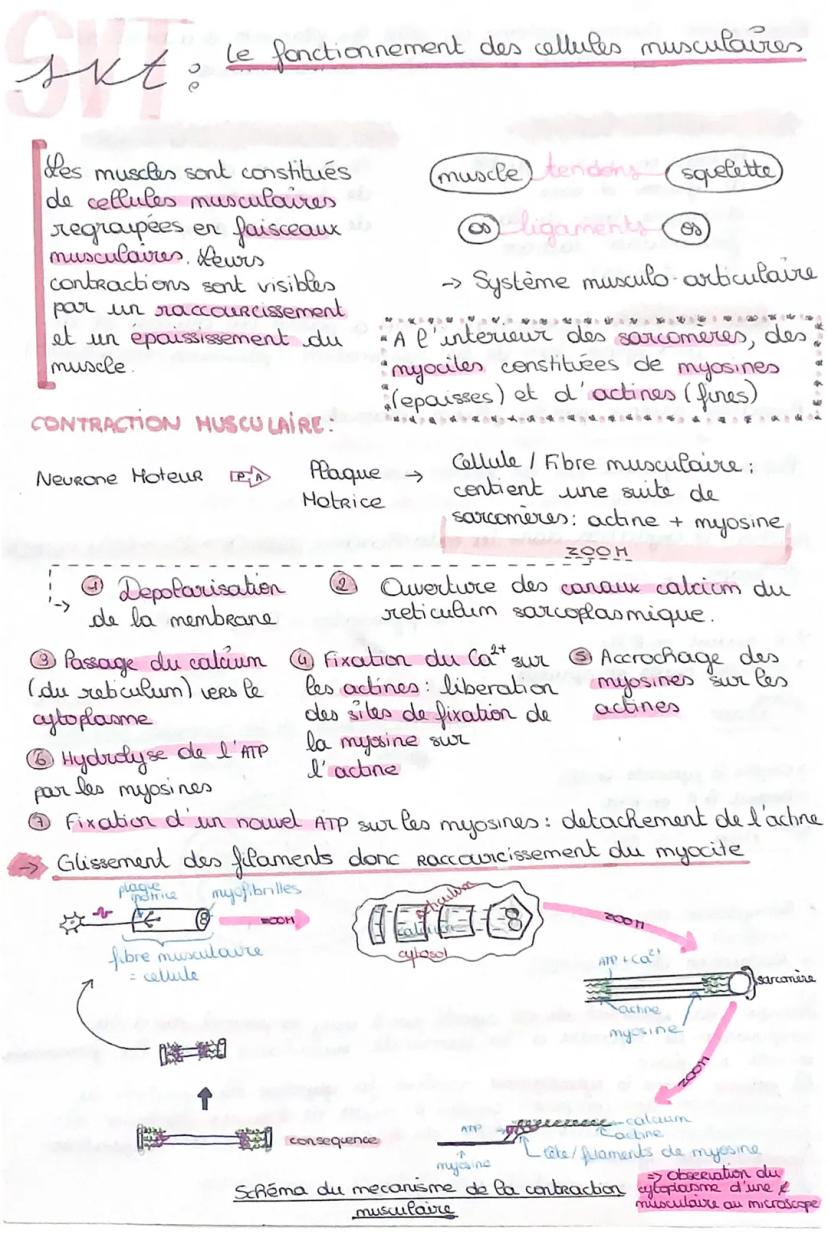 SVT
svt : Le fonctionnement des cellules musculaires
Les muscles sont constitués
de cellules musculaires
regroupées en faisceaux
musculaires. Leurs
contractions sont visibles
par un raccourcissement
et un epaississement du
muscle.
muscle tendons squelette
os ligaments os
-> Système musculo-articulaire
A l'intérieur des sarcomères, des
myocites constituées de myosines
(epaisses) et d'actines (fines)
CONTRACTION MUSCULAIRE :
Neurone Moteur PA Plaque Motrice → Cellule / Fibre musculaire :
contient une suite de
sarcomères : actine + myosine
ZOOM
① Depolarisation
de la membrane
② Ouverture des canaux calcium du
reticulum sarcoplasmique.
③ Passage du calcium
(du reticulum) vers le
cytoplasme
④ Fixation du Ca²⁺ sur
les actines : liberation
des sites de fixation de
la myosine sur
l'actine
⑤ Accrochage des
myosines sur les
actines
⑥ Hydrolyse de l'ATP
par les myosines
⑦ Fixation d'un nouvel ATP sur les myosines : detachement de l'actine
→ Glissement des filaments donc raccourcissement du myocite
plaque
motrice
myofibrilles
ZOOM
fibre musculaire
= cellule
reticulum
calcium
cytosol
ZOOM
ATP + Ca²⁺
sarcomère
actine
myosine
ZOOM
consequence
ATP
calcium
actine
tête / filaments de myosine
myosine
Schéma du mecanisme de la contraction
musculaire
=> Observation du
cytoplasme d'une
musculaire au microscope